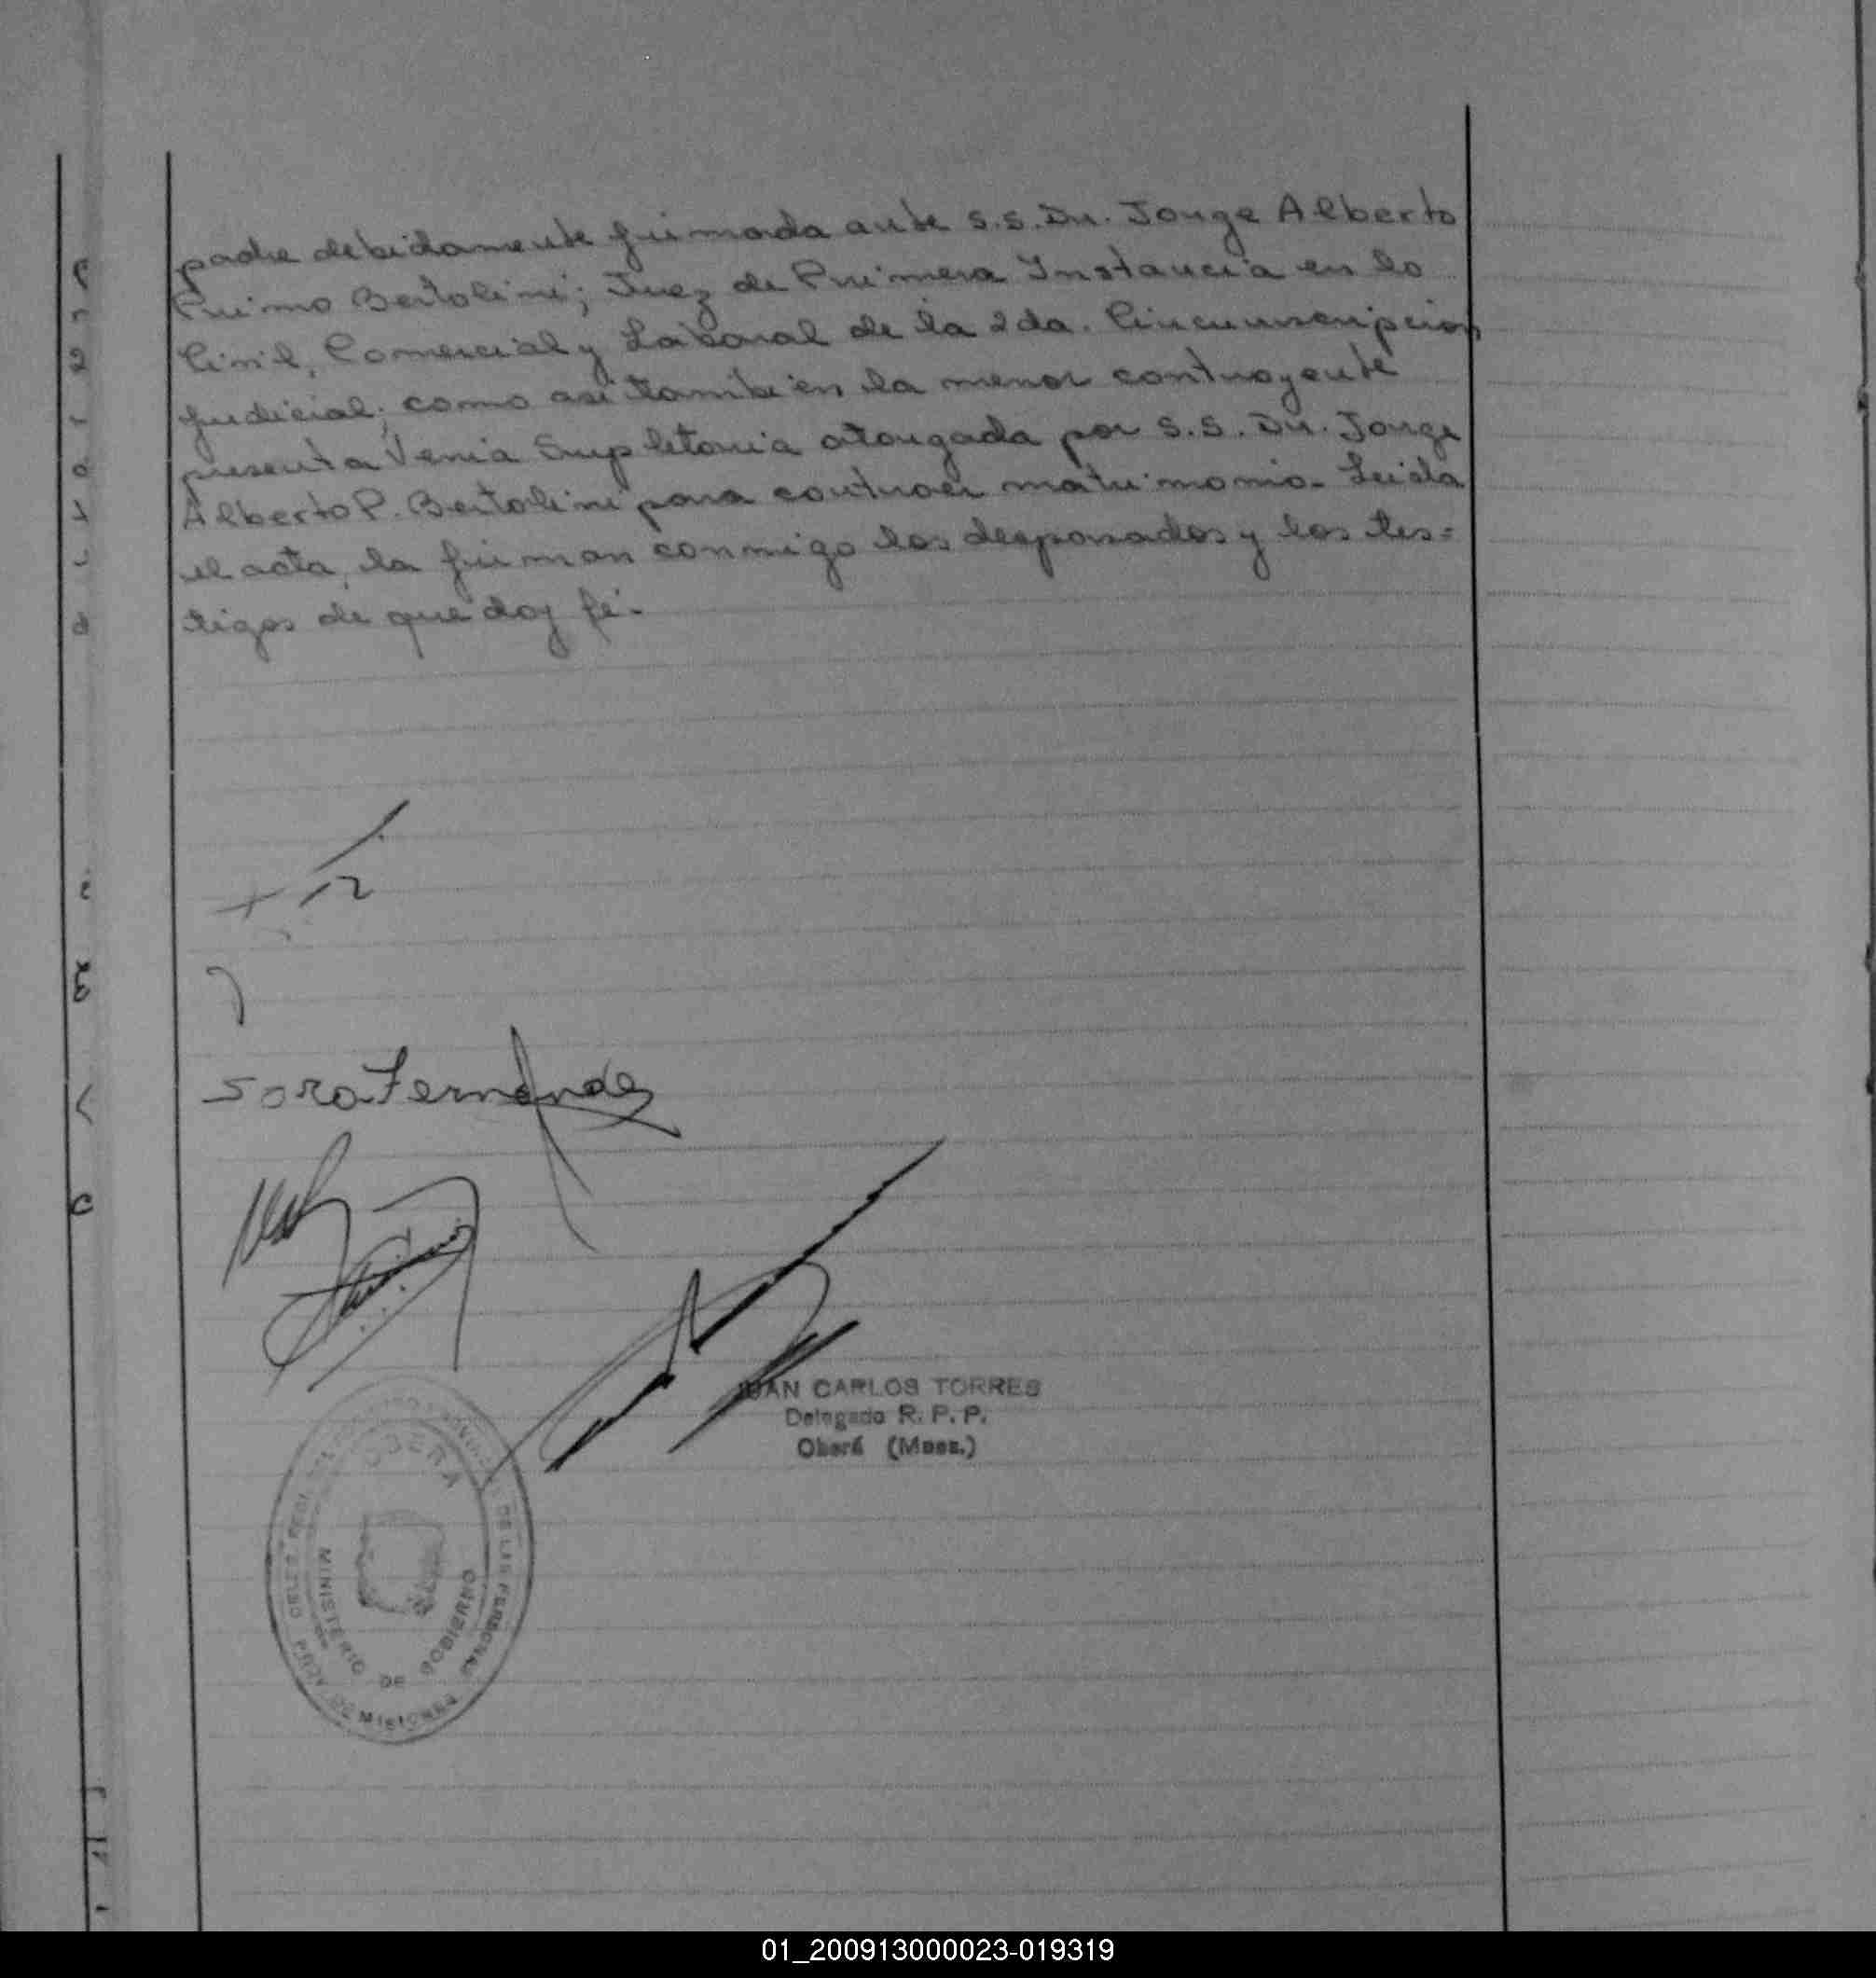 padre debidamente firmada ante S.S. Dr. Jorge Alberto
Primo Bertolini; Juez de Primera Instancia en lo
Civil, Comercial y Laboral de la 2da. Circunscripcion
judicial; como asi tambien la menor contrayente
presenta Venia Supletoria otorgada por S.S. Dr. Jorge
Alberto P. Bertolini para contraer matrimonio. Leida
el acta, la firman conmigo los desposados y los tes=
tigos de que doy fé.-
Sara Fernandez
JUAN CARLOS TORRES
Delegado R. P. P.
Oberá (Mnes.)
OBERA
MINISTERIO DE GOBIERNO
DE LAS PERSONAS
PROV. DE MISIONES
01_200913000023-019319